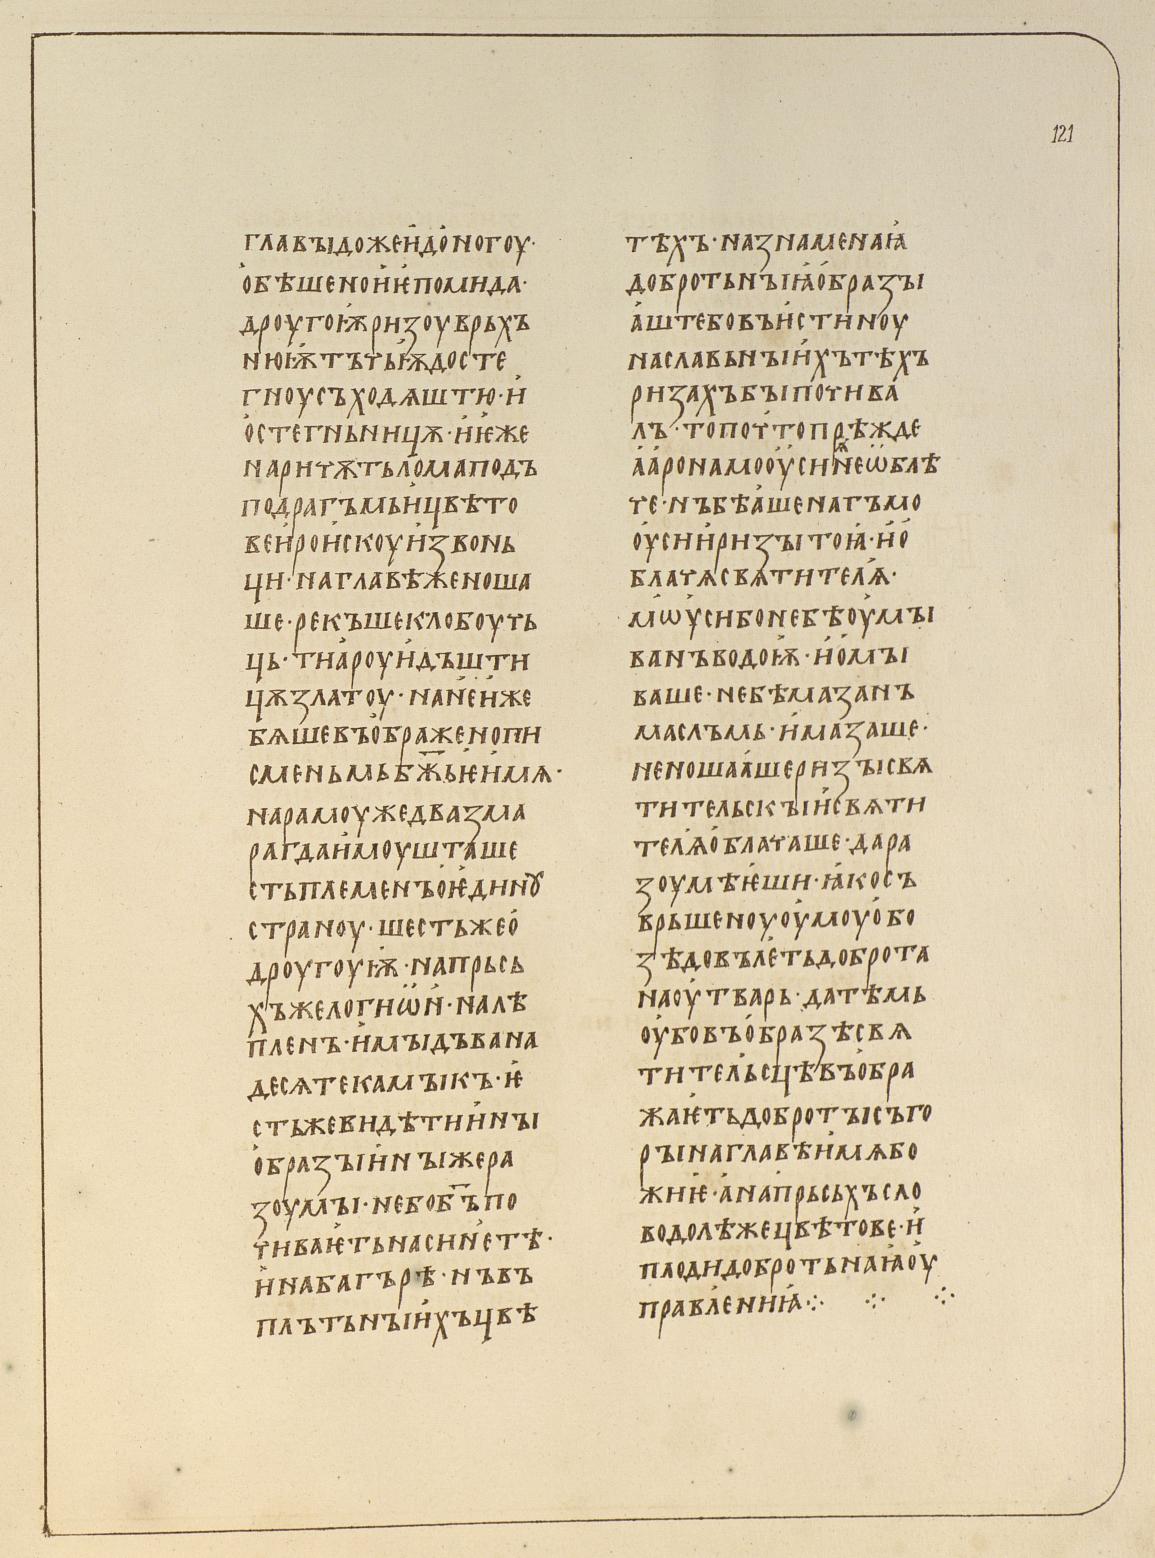 121
главъıдожен҆до҆ногоу·
о҆бѣшенои҆ѥ҆помида·
дроугоѭ҆ризоуврьхъ
нюѭ҆тъчьѭ҆досте
гноусъходѧштю·и҆
о҆стегньницѫ·и҆ѥ҆же
наричѫтьло҆маподъ
подрагъмьи҆цвѣто
веи҆рои҆скоуи҆звонь
ци·наглавѣженоша
ше·рекъшеклобоучь
ць·тиа҆роуи҆дъшти
цѫзлатоу·нан҆еи҆же
бѧшевъо҆браженопи
сменьмьбж҃ьѥи҆мѧ·
нарамоужедвазма
рагдаи҆моушташе
стьплеменъо҆ѥ҆динꙋ
страноу·шестьжео҆
дроугоуѭ҆·напрьсь
хъжелогиѡ҆н҆·налѣ
пленъ·и҆мъıдъвана
десѧтекамъıкъ·ѥ҆
стьжевидѣтии҆нъı
о҆бразъıи҆нъıжера
зоумъı·небоб҃ъпо
чиваѥ҆тьнасин҆етѣ·
и҆набагърѣ·нъвъ
плътьнъıи҆хъцвѣ
тѣхъ·назнаменаꙗ҆
добротьнъıꙗ҆о҆бразъı
а҆штебовъи҆стиноу
наславьнъıи҆хътѣхъ
ризахъбъıпочива҆
лъ·топочтопрѣжде
а҆а҆ронамооу҆син҆ѧеѡ҆блѣ
че·нъбѣа҆шенагъмо
оу҆сии҆ризъıтоꙗ҆·и҆о҆
блачѧсвѧтителѧ҆·
мѡу҆сибонебѣоу҆мъı
ванъводоѭ҆·и҆о҆мъı
ваше·небѣмазанъ
маслъмь·и҆мазаше·
неношаа҆шеризъıсвѧ
тительскъıи҆свѧти
телѧ҆о҆блачаше·дара
зоумѣѥ҆ши·ꙗ҆косъ
врьшеноуоу҆моуо҆бо
зѣдовълѣ҆тьдоброта
наоу҆тварь·датѣмь
оу҆бовъо҆бразѣсвѧ
тительсцѣвъо҆бра
жаѥ҆тьдобротъıсъго
ръıнаглавѣи҆мѧбо
жиѥ҆·а҆напрьсьхъсло
водолѣжецвѣтове·и҆
плодидобротьнаꙗ҆оу҆
правлениꙗ҆⁘ ⁘ ⁘